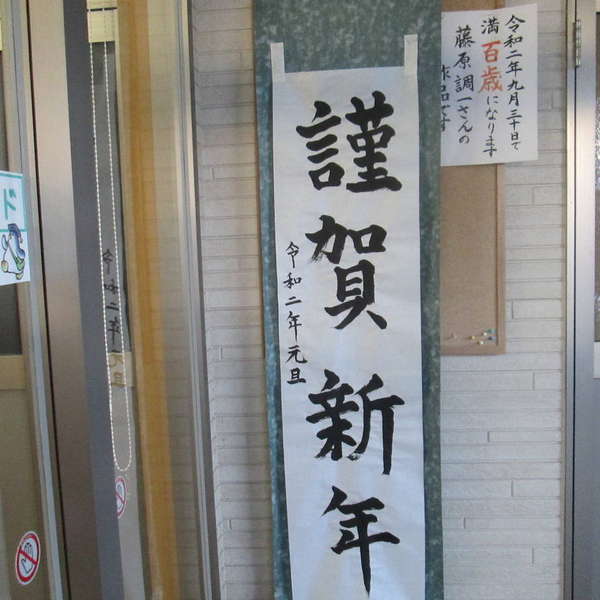 謹賀新年
令和二年元旦
令和二年九月三十日で
満百歳になります
藤原調一さんの
作品です
ド